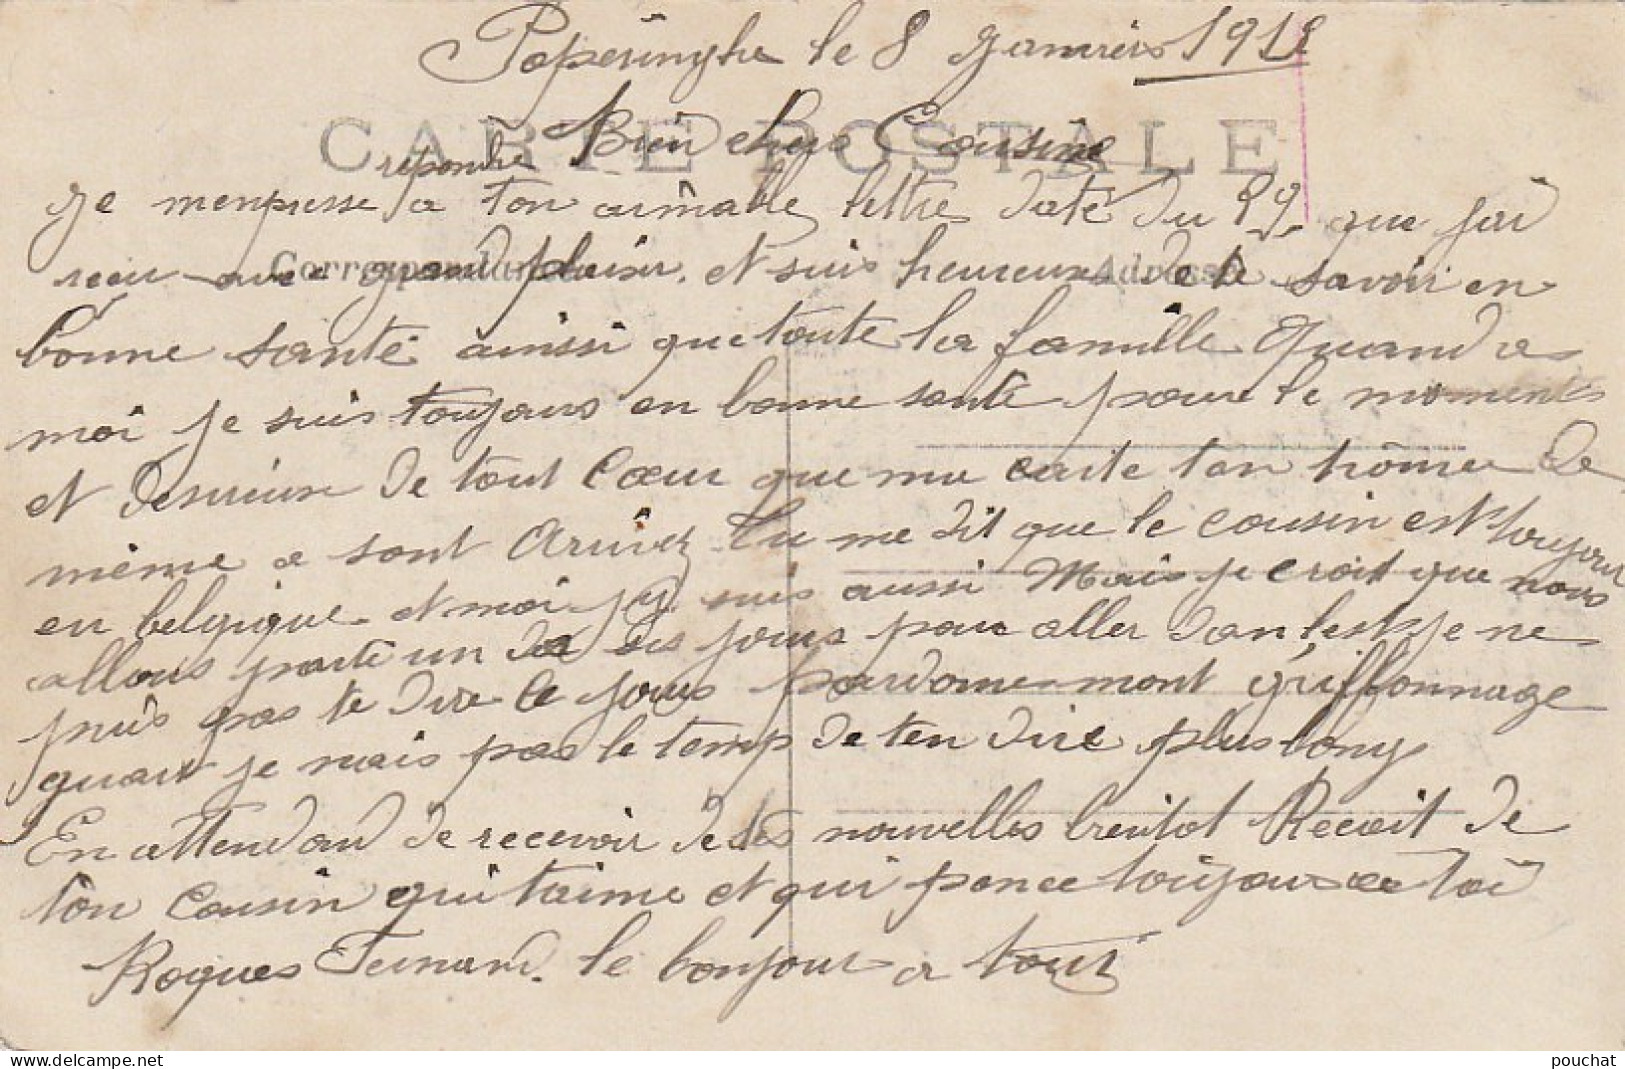 Poperinghe le 8 Janvier 1918
CARTE POSTALE
Bien cher Cousine
répondre
Je menpresse a ton aimable lettre daté du 29, que jai
Correspondance Adresse
recu avec grand plaisir. et suis heureux de te savoir en
bonne santé ainsi que toute la famille Quand a
moi je suis toujours en bonne santé pour le moment
et desireux de tout Cœur que ma carte ton trouve de
même a sont arivez. Tu me dit que le cousin est toujour
en belgique et moi jy suis aussi Mais je croit que nous
allons partir un de ses jours pour aller dan lest je ne
puis pas te dire le jour pardonne mont griffonnage
quart je nais pas le temp de ten dire plus long
En attendand de recevoir de tes nouvelles bientot Recoit de
ton Cousin qui taime et qui pence toujours a toi
Roques Fernand. le bonjour a tous
pouchat